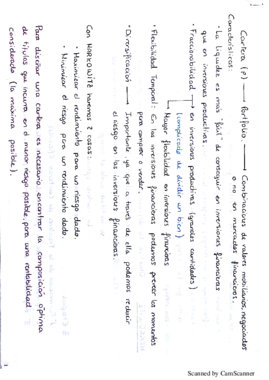 Cartera (P) → Portfolio → Combinaciones de valores mobiliarios, negociados
o no en mercados financieros.
Características:
· La liquidez es más "fácil" de conseguir en inversiones financieras
que en inversiones productivas.
· Fraccionabilidad → en inversiones productivas (grandes cantidades)
(complicado de dividir un bien)
Mayor flexibilidad en inversiones financieras
· Flexibilidad Temporal: En las inversiones financieras podemos prever los momentos
para comprar vender.
· Diversificación → Importante ya que a través de ella podemos reducir
el riesgo en las inversiones financieras.
Con MARKOWITZ haremos 2 cosas:
· Maximizar el rendimiento para un riesgo dado.
· Minimizar el riesgo para un rendimiento dado.
Para diseñar una cartera es necesario encontrar la composición óptima
de títulos que incurra en el menor riesgo posible, para una rentabilidad
considerada (la máxima posible).
Scanned by CamScanner